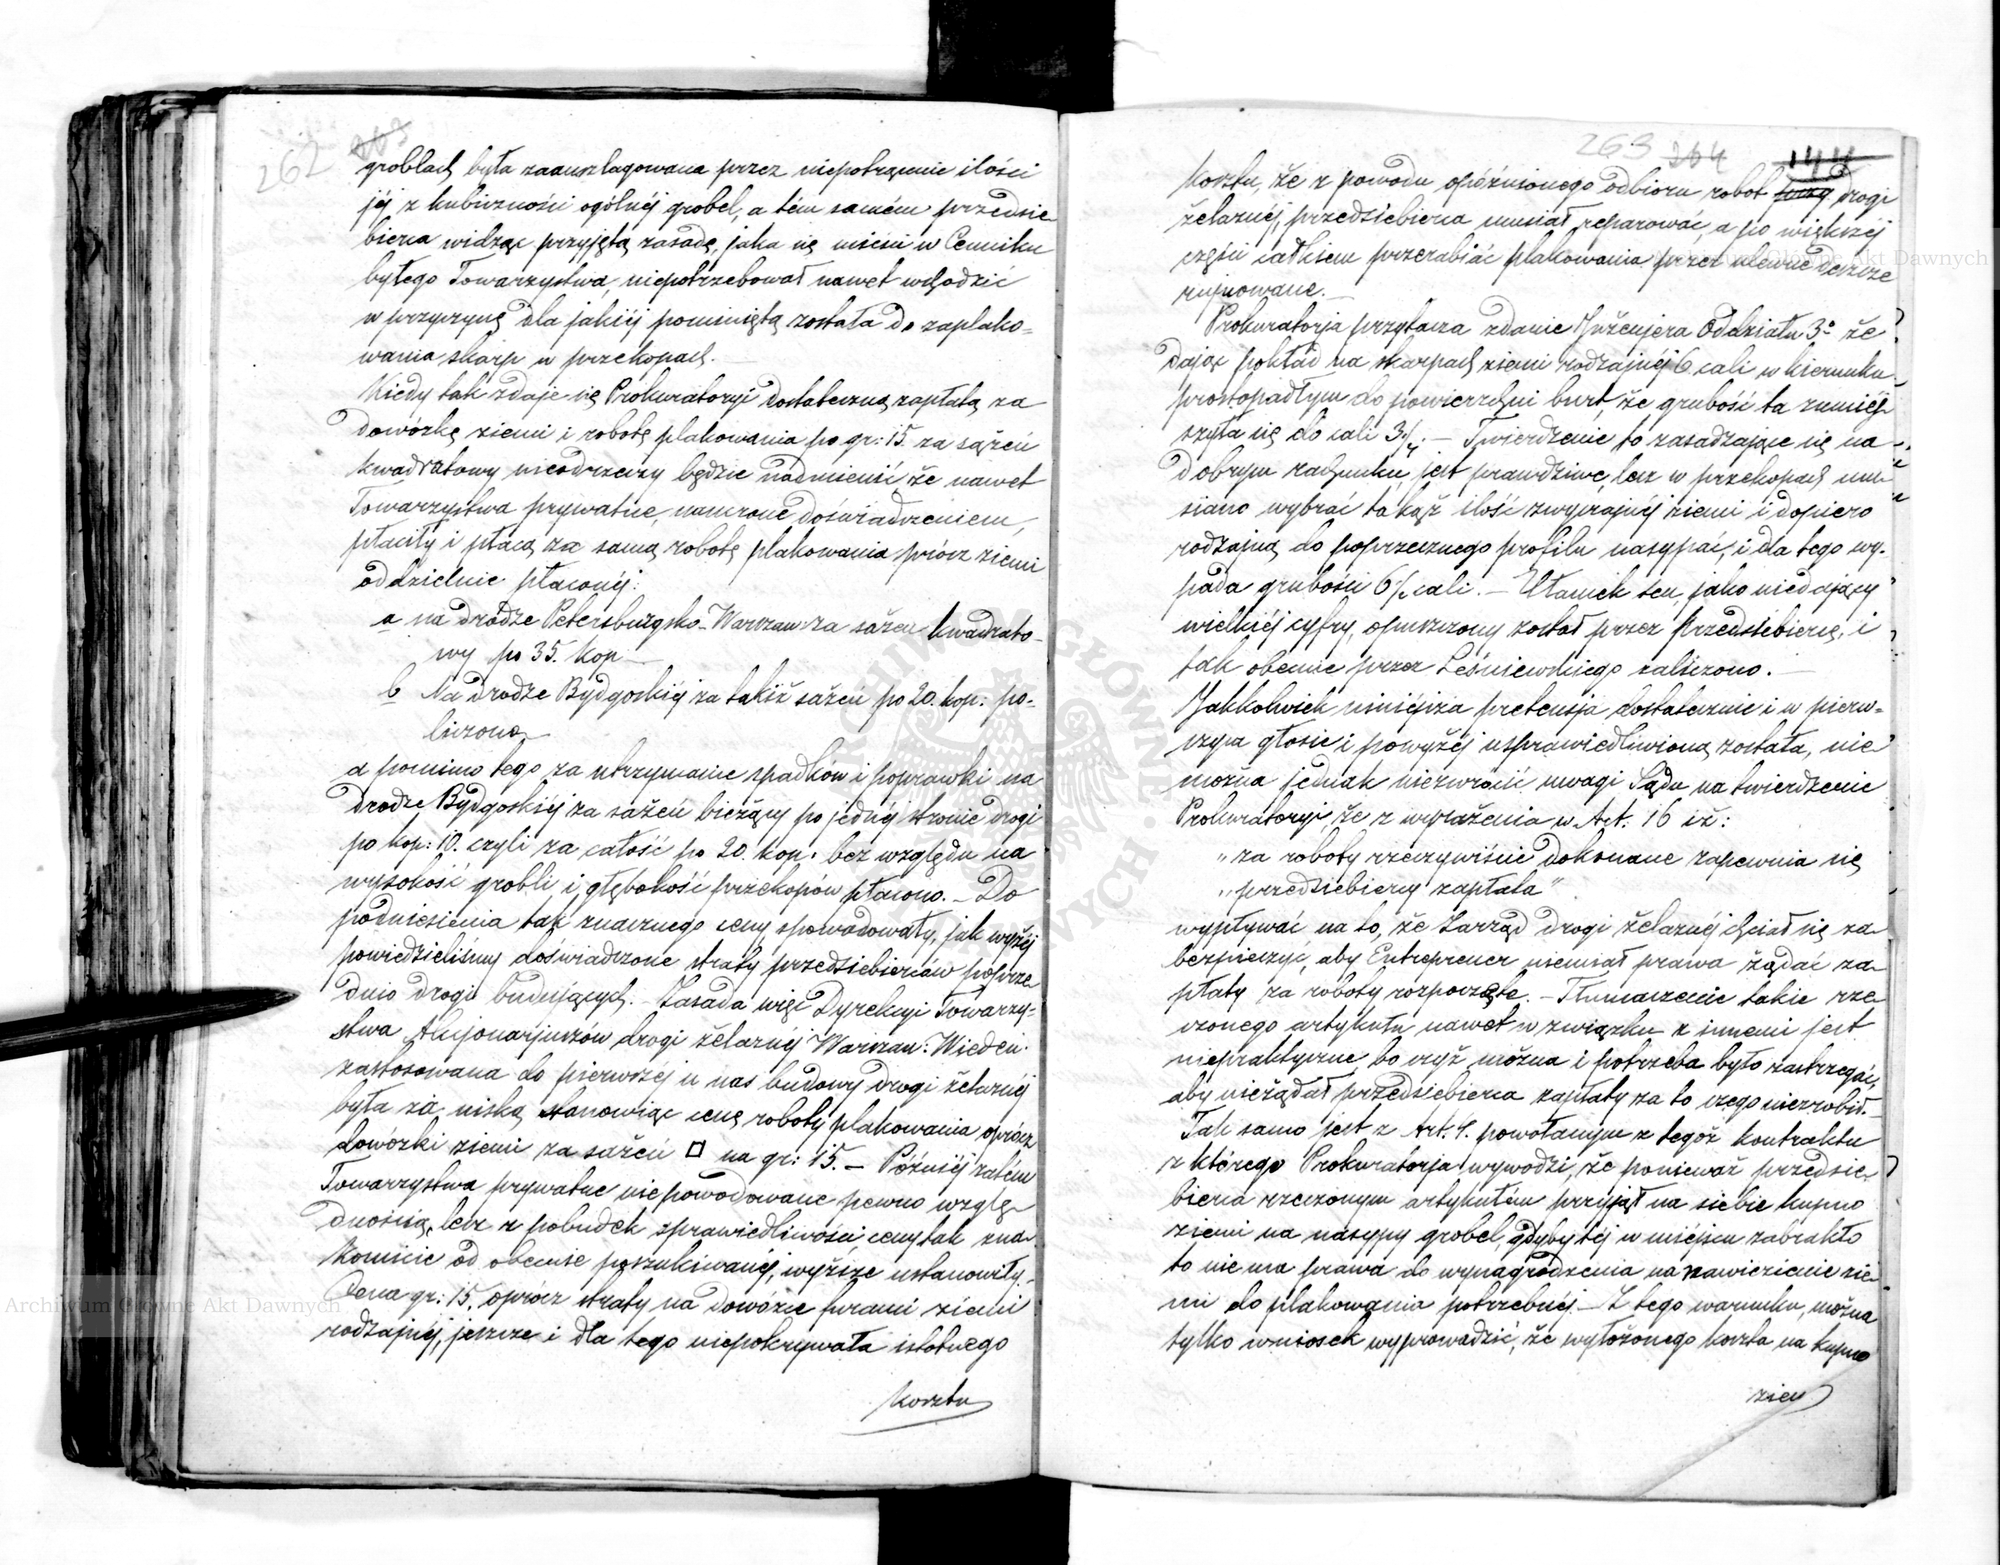 262 263
groblach była zaanszlagowana przez niepotrącenie ilości
jéj z kubiczności ogólnéj grobel, a tém samém przedsię
bierca widząc przyjętą zasadę, jaka się mieści w Cenniku
byłego Towarzystwa, niepotrzebował nawet wchodzić
w przyczynę dla jakiéj pominiętą została do zaplako-
wania skarp w przekopach.
Kiedy tak zdaje się Prokuratoryi dostateczną zapłatą za
dowózkę ziemi i robotę plakowania po gr: 15. za sążeń
kwadratowy nieodrzeczy będzie nadmienić, że nawet
Towarzystwa prywatne, nauczone doświadczeniem,
płaciły i płacą za samą robotę plakowania prócz ziemi
oddzielnie płaconéj:
a na drodze Petersbugsko-Warszaw: za sążeń kwadrato-
wy po 35. kop
b Na drodze Bydgoskiéj za takiż sążeń po 20. kop: po-
liczono
a pomimo tego za utrzymanie spadków i poprawki na
drodze Bydgoskiéj za sążeń bieżący po jednéj stronie drogi
po kop: 10. czyli za całość po 20. kop. bez względu na
wysokość grobli i głębokość przekopów płacono. – Do
podniesienia tak znacznego ceny spowodowały, jak wyżéj
powiedzieliśmy doświadczone straty przedsiebierców poprze
dnio drogi budujących. – Zasada więc Dyrekcyi Towarzy-
stwa Akcjonarjuszów drogi żelaznéj Warszaw: Wiedeń:
zastosowana do pierwszéj u nas budowy drogi żelaznéj
była za niską stanowiąc cenę roboty plakowania oprócz
dowózki ziemi za sążeń □ na gr: 15. – Późniéj zatém
Towarzystwa prywatne niepowodowane pewno wzglę-
dnością, lecz z pobudek sprawiedliwości, ceny tak zna-
komicie od obecnie poszukiwanéj, wyższe ustanowiły.
Cena gr: 15. oprócz straty na dowózce furami ziemi
rodzajnéj, jeszcze i dla tego niepokrywała istotnego
kosztu
263 264 146
Kosztu, że z powodu opóźnionego odbioru robot drogi
żelaznéj, przedsiebierca musiał reparować, a po większéj
części całkiem przerabiać plakowania przez ulewne deszcze
rujnowane. –
Prokuratorja przytacza zdanie Inżenjera Oddziału 3o że
dając pokład na skarpach ziemi rodzajnéj 6 cali w kierunku
prostopadłym do powierzchni burt, że grubość ta zmniéj-
szyła się do cali 3/. – Twierdzenie to zasadzające się na
dobrym rachunku, jest prawdziwe, lecz w przekopach mu-
siano wybrać takąż ilość zwyczajnéj ziemi i dopiero
rodzajną do poprzecznego profilu nasypać, i dla tego wy-
pada grubości 6/ cali. – Ułamek ten, jako niedający
wielkiéj cyfry, opuszczony został przez Przedsiebiercę, i
tak obecnie przez Leśniewskiego zaliczono. –
Jakkolwiek niniéjsza pretensja dostatecznie i w pierw-
szym głosie i powyżéj usprawiedliwioną została, nie
można jednak niezwrócić uwagi Sądu na twierdzenie
Prokuratoryi, że z wyrażenia w Art. 16 iż:
„za roboty rzeczywiście dokonane zapewnia się
„przedsiebiercy zapłata”
wypływać ma to, że Zarząd drogi żelaznéj chciał się za-
bezpieczyć, aby Entreprener niemiał prawa żądać za-
płaty za roboty rozpoczęte. – Tłumaczenie takie rze-
czonego artykułu nawet w związku z innemi jest
niepraktyczne, bo czyż można i potrzeba było zastrzegać,
aby nieżądał przedsiebierca zapłaty za to czego niezrobił. –
Tak samo jest z Art. 4. powołanym z tegoż kontraktu
z którego Prokuratorja wywodzi, że ponieważ przedsie-
bierca rzeczonym artykułém przyjął na siebie kupno
ziemi na nasypy grobel, gdyby téj w miéjscu zabrakło
to nie ma prawa do wynagrodzenia na nawiezienie zie-
mi do plakowania potrzebnéj. – Z tego warunku, można
tylko wniosek wyprowadzić, że wyłożonego koszta na kupno
ziemi
Archiwum Główne Akt Dawnych
Archiwum Główne Akt Dawnych
ARCHIWUM GŁÓWNE AKT DAWNYCH